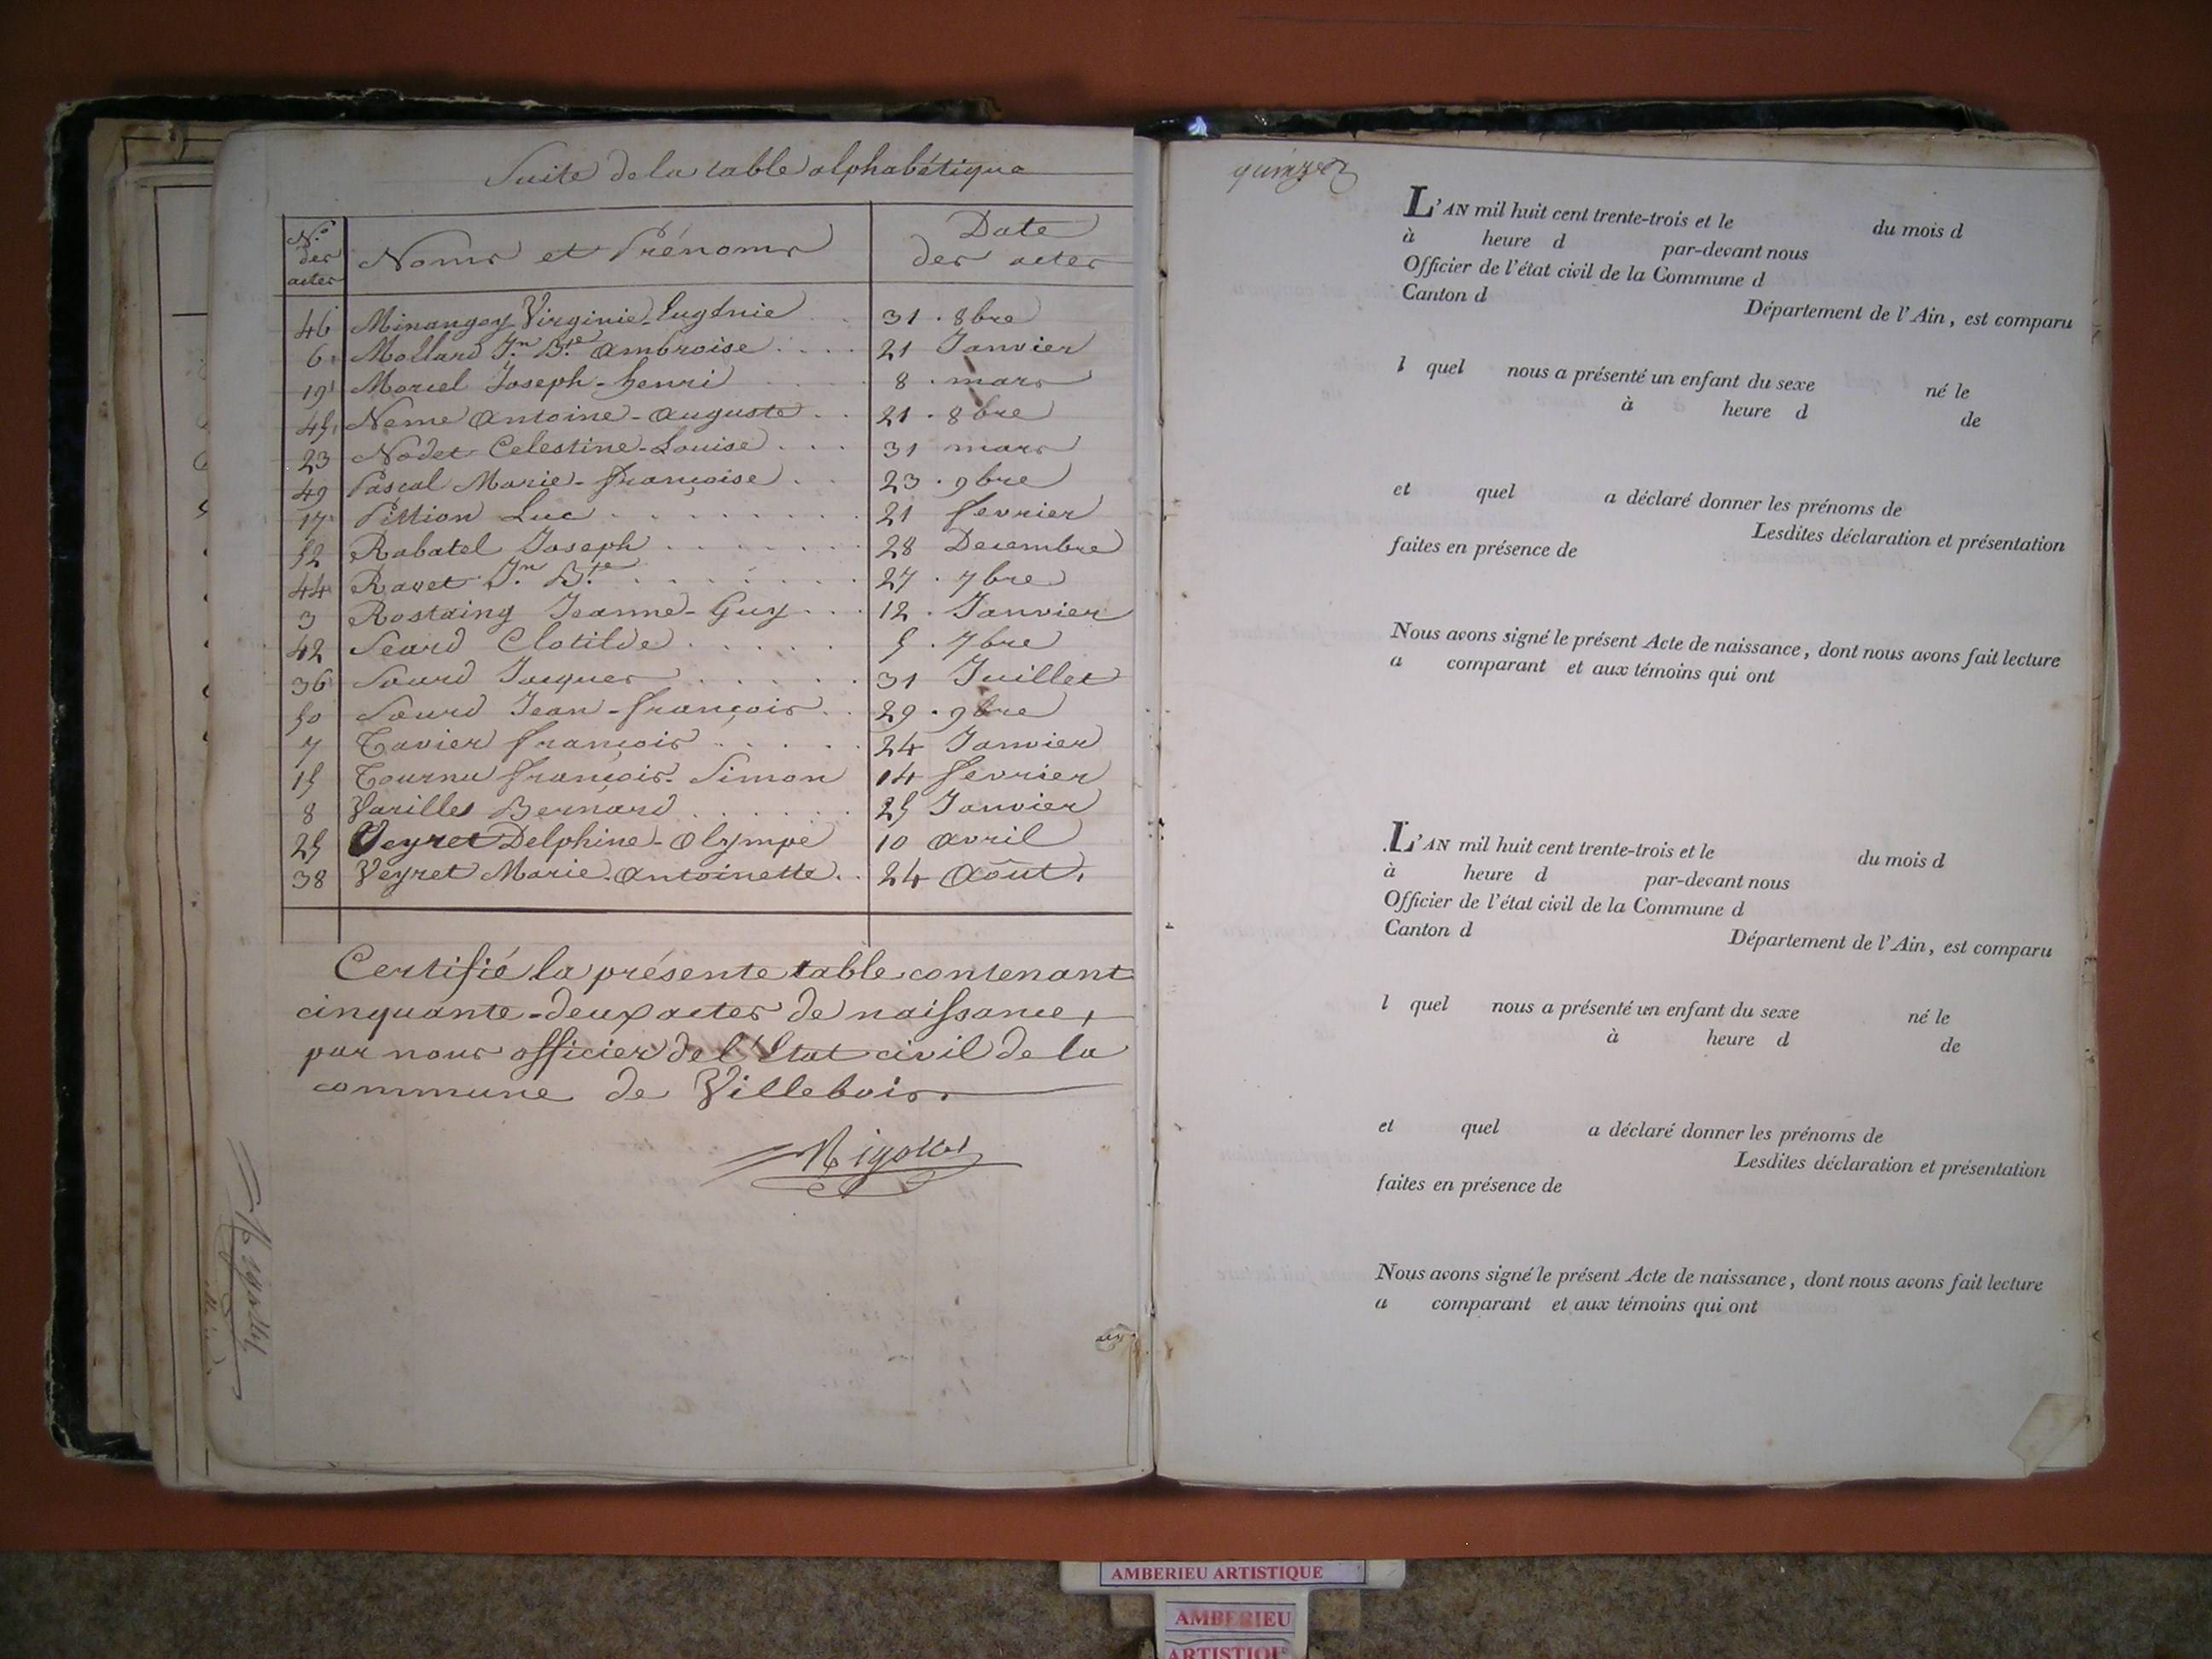 Suite de la table alphabétique
N.º des actes Noms et Prénoms Date des actes
46 Minangoy Virginie-Eugénie . . 31 . 8bre
6 Mollard Jn Bte Ambroise . . . . 21 Janvier
19 Morel Joseph-henri 8 . mars
45 Neme Antoine-Auguste . . 21 . 8bre
23 Nodet Celestine-Louise . . . 31 mars
49 Pascal Marie-françoise . . 23 . 9bre
17 Pittion Luc . . . . . . . . 21 fevrier
52 Rabatel Joseph . . . . . . . 28 Decembre
44 Ravet Jn Bte . . . . . . . 27 . 7bre
3 Rostaing Jeanne-Guy . . . 12 . Janvier
42 Seard Clotilde . . . . . 5 . 7bre
36 Sourd Jacques . . . . . . 31 Juillet
50 Sourd Jean-françois . . 29 . 9bre
7 Tavier françois . . . . . 24 Janvier
15 Tournu françois-Simon 14 fevrier
8 Varilles Bernard . . . . . . 25 Janvier
25 Veyret Delphine-Olympe 10 avril
38 Veyret Marie-Antoinette . . 24 Août.
Certifié la présente table contenant
cinquante-deux actes de naissance,
par nous officier de l'Etat civil de la
commune de Villebois.
quinze
L'AN mil huit cent trente-trois et le du mois d
à heure d par-devant nous
Officier de l'état civil de la Commune d
Canton d Département de l'Ain, est comparu
l quel nous a présenté un enfant du sexe né le
à heure d de
et quel a déclaré donner les prénoms de
Lesdites déclaration et présentation
faites en présence de
Nous avons signé le présent Acte de naissance, dont nous avons fait lecture
a comparant et aux témoins qui ont
L'AN mil huit cent trente-trois et le du mois d
à heure d par-devant nous
Officier de l'état civil de la Commune d
Canton d Département de l'Ain, est comparu
l quel nous a présenté un enfant du sexe né le
à heure d de
et quel a déclaré donner les prénoms de
Lesdites déclaration et présentation
faites en présence de
Nous avons signé le présent Acte de naissance, dont nous avons fait lecture
a comparant et aux témoins qui ont
AMBERIEU ARTISTIQUE
AMBERIEU